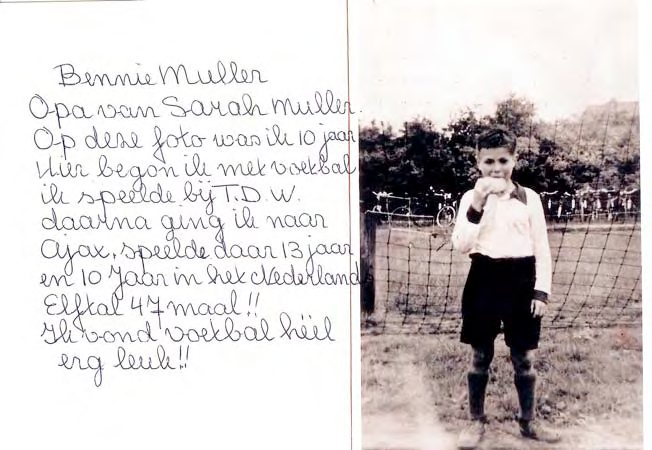 Bennie Muller
Opa van Sarah Muller.
Op deze foto was ik 10 jaar
Hier begon ik met voetbal
ik speelde bij T.D.W.
daarna ging ik naar
Ajax, speelde daar 13 jaar
en 10 Jaar in het Nederlands
Elftal 47 maal!!
Ik vond voetbal héél
erg leuk!!